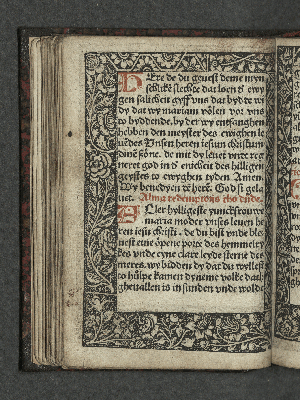 HEre de du geuest deme myn
schliken slechte dat loen d' ewy
gen salicheit gyff vns dat bydde wi
dy dat wy mariam völen vor vns
to byddende, by der wy entfanghen
hebben den meyster des ewighen le
uedes Vnsen heren iesum christum
dine söne. de mit dy leuet vnde reg
neret god in d' enicheit des hilligen
geystes to ewyghen tyden Amen.
Wy benedyen d' here. God sy gela
uet. Alma redemptoris
ALler hylligeste yunckfrouwe
maria moder vnses leuen he
ren iesu christi. de du bist vnde bli
uest eine opene porte des hemmelry
kes vnde eyne clare leyde sterne des
meres. wy bidden dy dat du wyllest
to hülpe kamen dyneme volke dat
gheuallen is in sunden vnde wolde